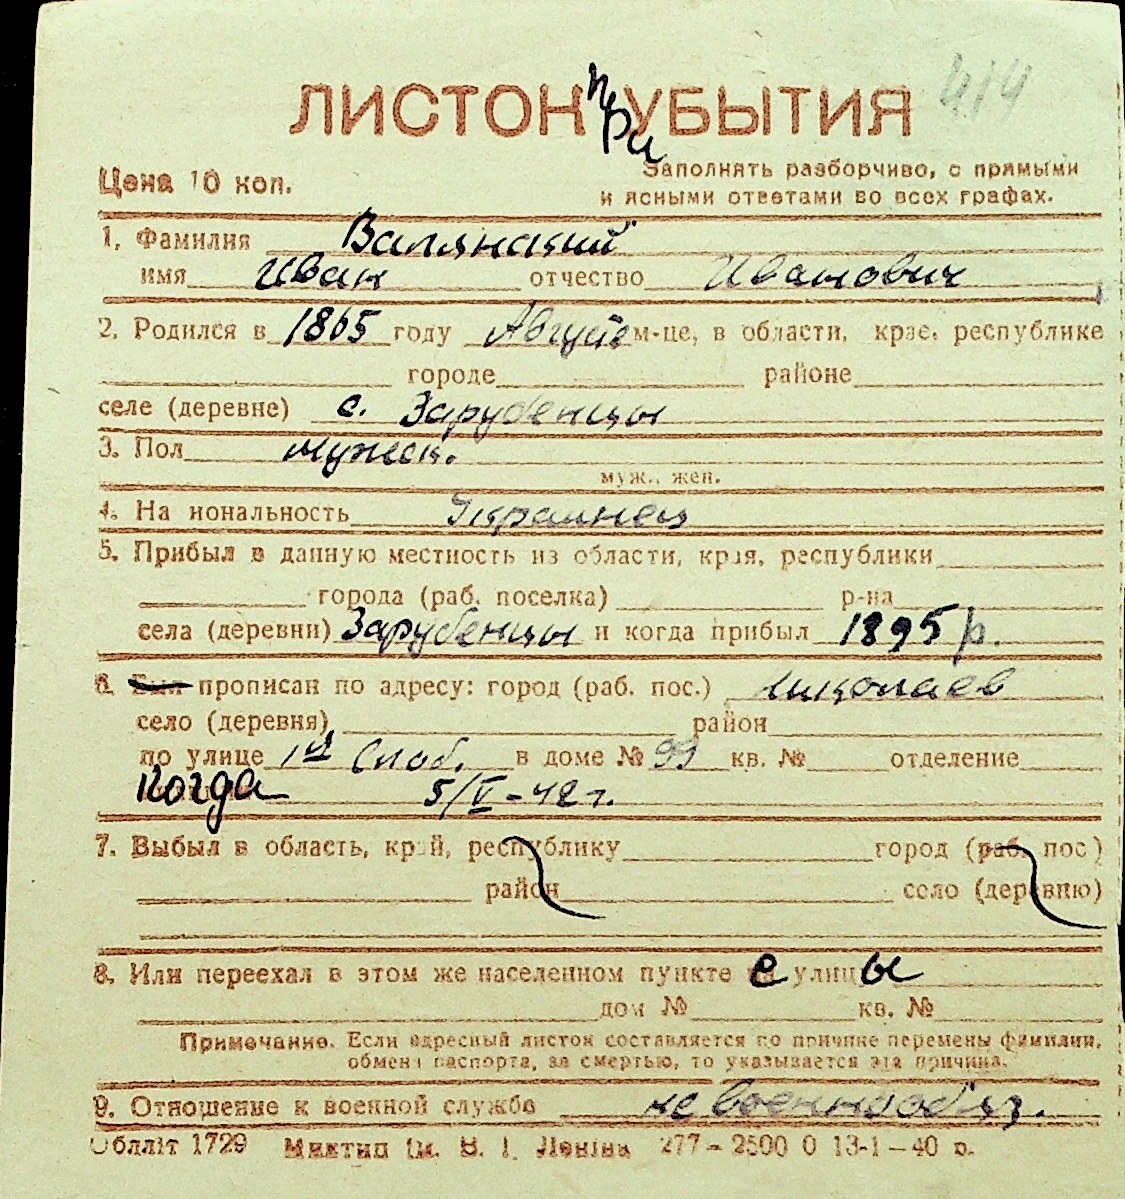 414
ЛИСТОК при УБЫТИЯ
Цена 10 коп.
Заполнять разборчиво, с прямыми
и ясными ответами во всех графах.
1. Фамилия Валянский
имя Иван отчество Иванович
2. Родился в 1865 году Август м-це, в области, крае, республике
городе районе
селе (деревне) с. Зарубенцы
3. Пол мужск.
муж., жен.
4. На иональность Украинец
5. Прибыл в данную местность из области, края, республики
города (раб. поселка) р-на
села (деревни) Зарубенцы и когда прибыл 1895 р.
6. Был прописан по адресу: город (раб. пос.) Николаев
село (деревня) район
по улице 1я Слоб. в доме № 99 кв. № отделение
когда 5/V-42 г.
7. Выбыл в область, край, республику город (раб. пос)
район село (деревню)
8. Или переехал в этом же населенном пункте с улицы
дом № кв. №
Примечание. Если адресный листок составляется по причине перемены фамилии,
обмена паспорта, за смертью, то указывается эта причина.
9. Отношение к военной службе не военнообяз.
Облліт 1729 Миктип ім. В. І. Леніна 277-2500 0 13-1-40 р.